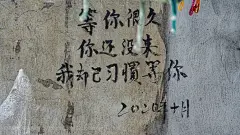 等你很久
你还没来
我却已习惯等你
2020年十月